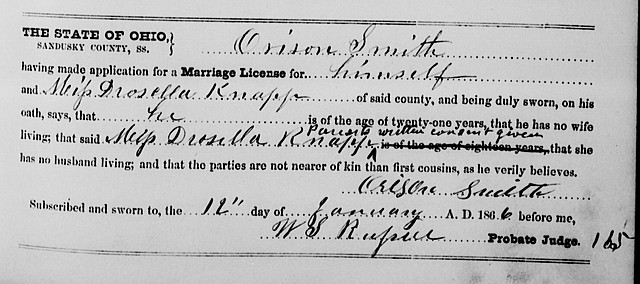 THE STATE OF OHIO, } Orison Smith
SANDUSKY COUNTY, SS.
having made application for a Marriage License for himself
and Miss Drosella Knapp of said county, and being duly sworn, on his
oath, says, that he is of the age of twenty-one years, that he has no wife
Parents written consent given
living; that said Miss Drosilla Knapp ^ is of the age of eighteen years, that she
has no husband living; and that the parties are not nearer of kin than first cousins, as he verily believes.
Orison Smith
Subscribed and sworn to, the 12" day of January A. D. 1866 before me,
W S Russell Probate Judge. 165